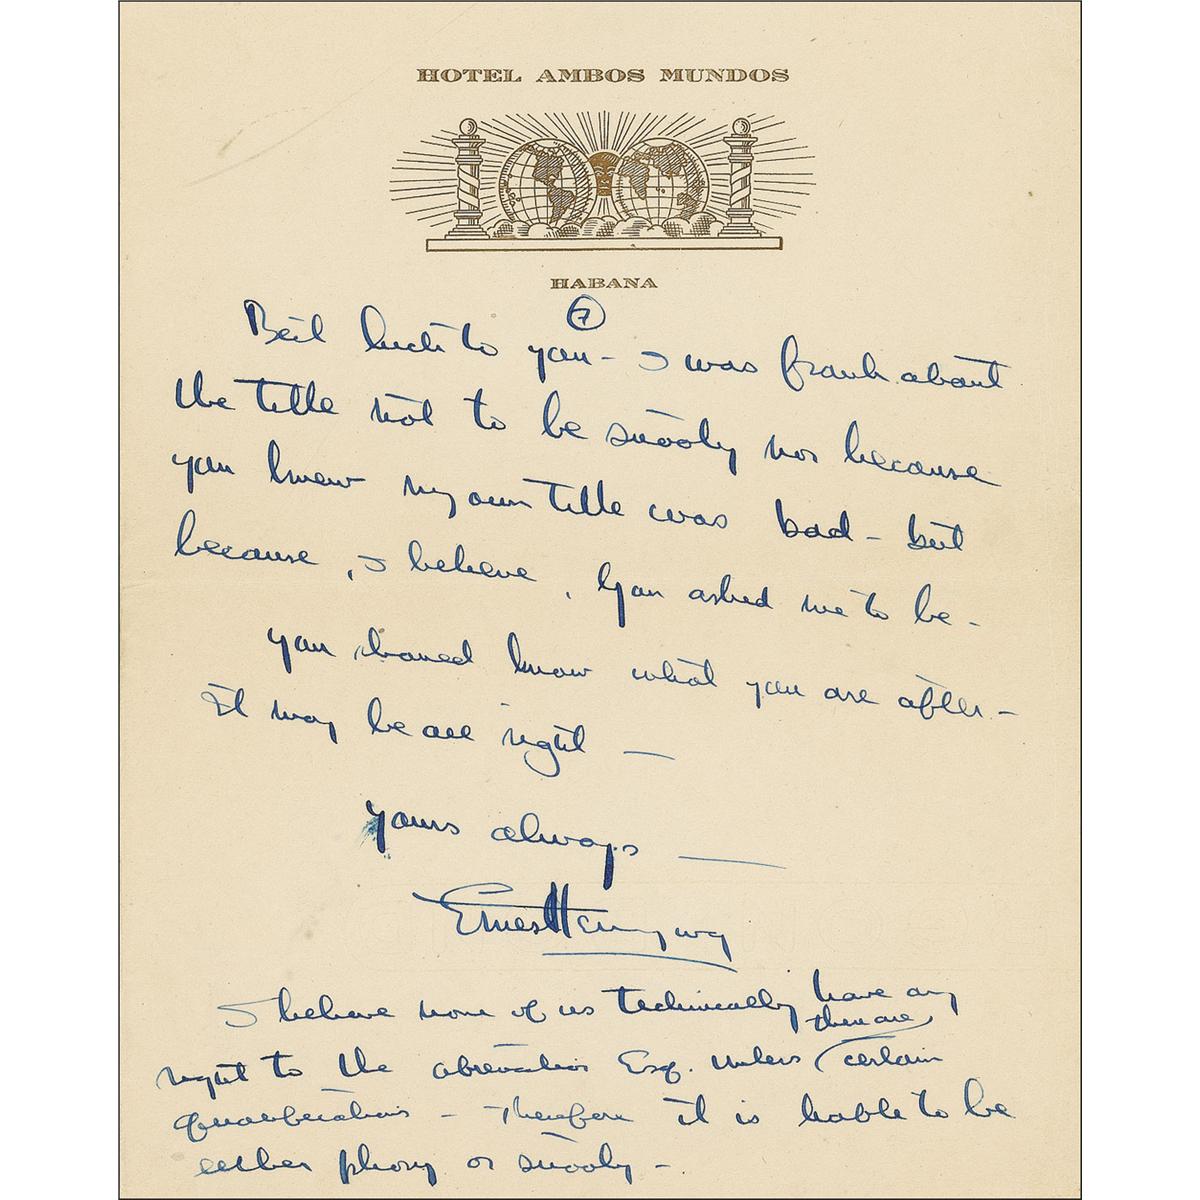 HOTEL AMBOS MUNDOS
HABANA
7
Best luck to you – I was frank about
the title not to be snooty nor because
you knew my own title was bad – but
because, I believe, you asked me to be –
you should know what you are after –
It may be all right —
Yours always —
Ernest Hemingway
I believe none of us technically have any
there are
right to the abreviation Esq. unless certain
qualifications – Therefore it is liable to be
either phony or snooty –